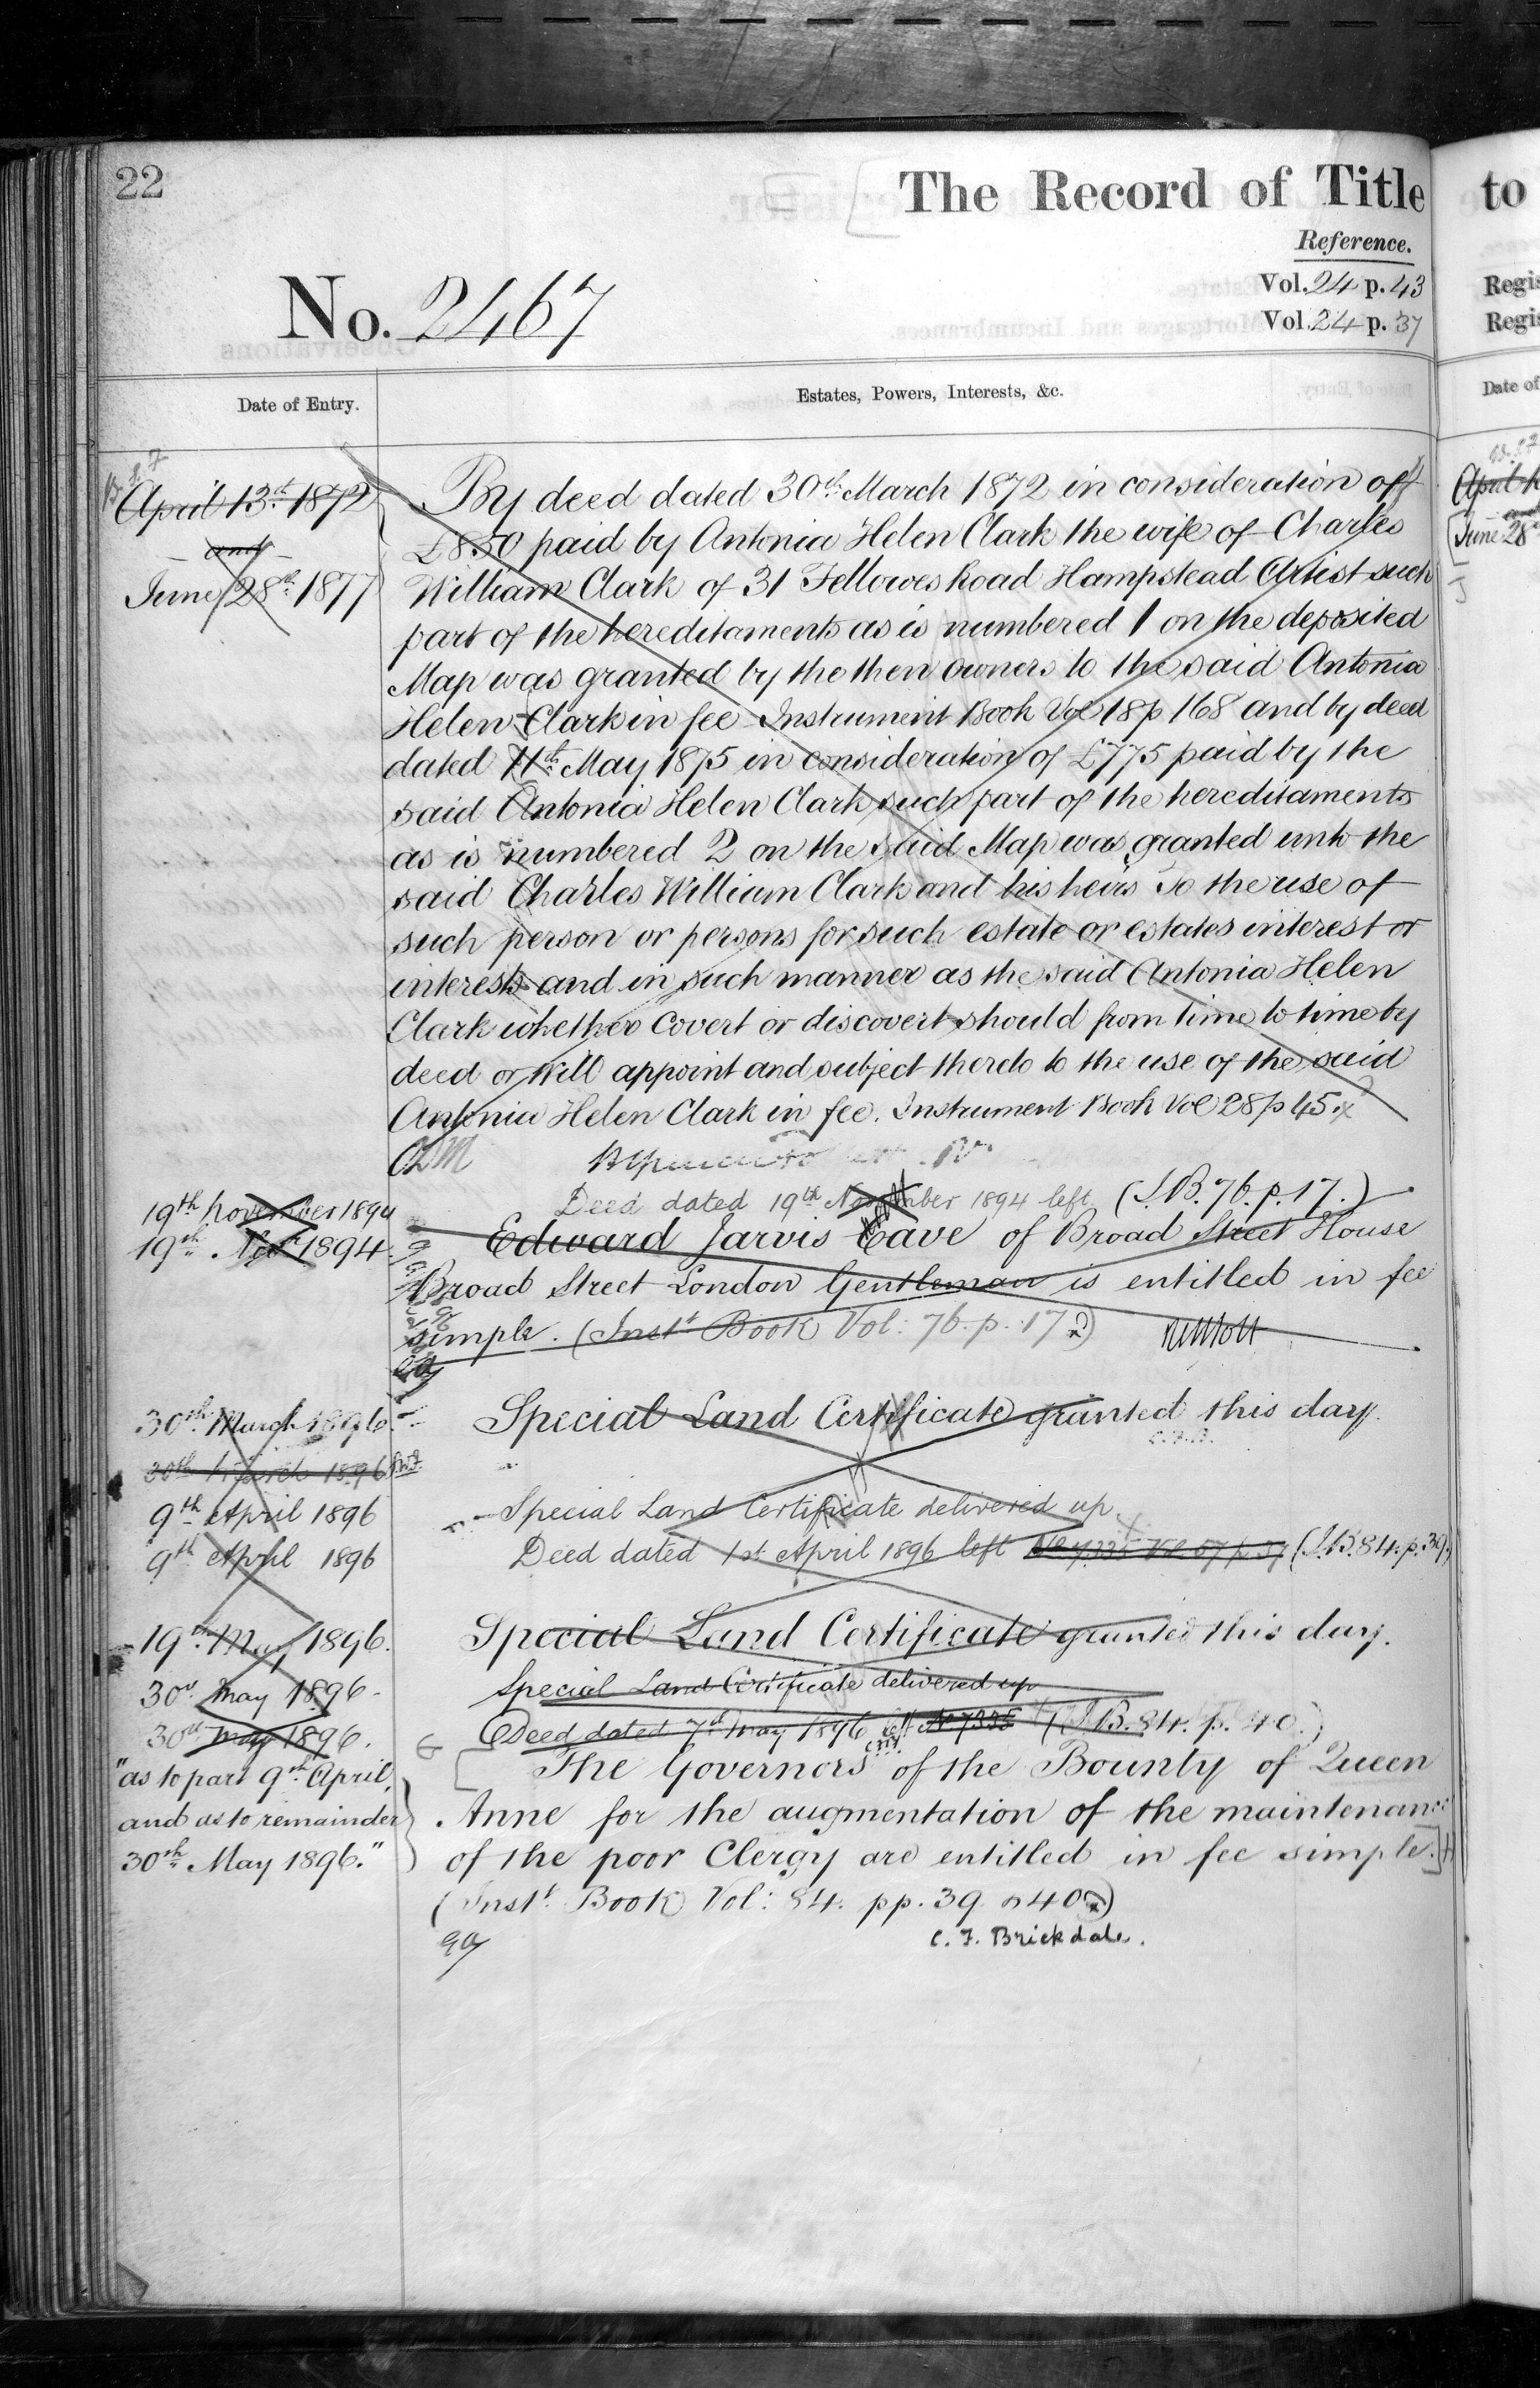 22
The Record of Title
to
Reference.
No. 2467
Vol. 24 p. 43
Vol. 24 p. 37
Regis
Regis
Date of Entry.
Estates, Powers, Interests, &c.
Date of
April 13th 1872
and
June 28th 1877
By deed dated 30th March 1872 in consideration of
£850 paid by Antonia Helen Clark the wife of Charles
William Clark of 31 Fellowes Road Hampstead Artist such
part of the hereditaments as is numbered 1 on the deposited
Map was granted by the then owners to the said Antonia
Helen Clark in fee Instrument Book Vol 18 p 168 and by deed
dated 11th May 1875 in consideration of £775 paid by the
said Antonia Helen Clark such part of the hereditaments
as is numbered 2 on the said Map was granted unto the
said Charles William Clark and his heirs To the use of
such person or persons for such estate or estates interest or
interests and in such manner as the said Antonia Helen
Clark whether Covert or discovert should from time to time by
deed or Will appoint and subject thereto to the use of the said
Antonia Helen Clark in fee. Instrument Book Vol 28 p 45.
19th November 1894 Deed dated 19th November 1894 left (I.B. 76. p. 17.)
19th Novr 1894. Edward Jarvis Cave of Broad Street House
Broad Street London Gentleman is entitled in fee
simple. (Inst. Book Vol: 76. p. 17)
30th March 1896. Special Land Certificate granted this day.
C.F.B.
30th March 1896
9th April 1896 Special Land Certificate delivered up
9th April 1896 Deed dated 1st April 1896 left (I.B. 84. p. 39.)
19th May 1896. Special Land Certificate granted this day.
30th May 1896. Special Land Certificate delivered up
30th May 1896. Deed dated 7th May 1896 left No 7335 (I.B. 84. p. 40.)
"as to part 9th April, The Governors of the Bounty of Queen
and as to remainder Anne for the augmentation of the maintenance
30th May 1896." of the poor Clergy are entitled in fee simple.
(Inst. Book Vol: 84. pp. 39 & 40)
C. F. Brickdale.